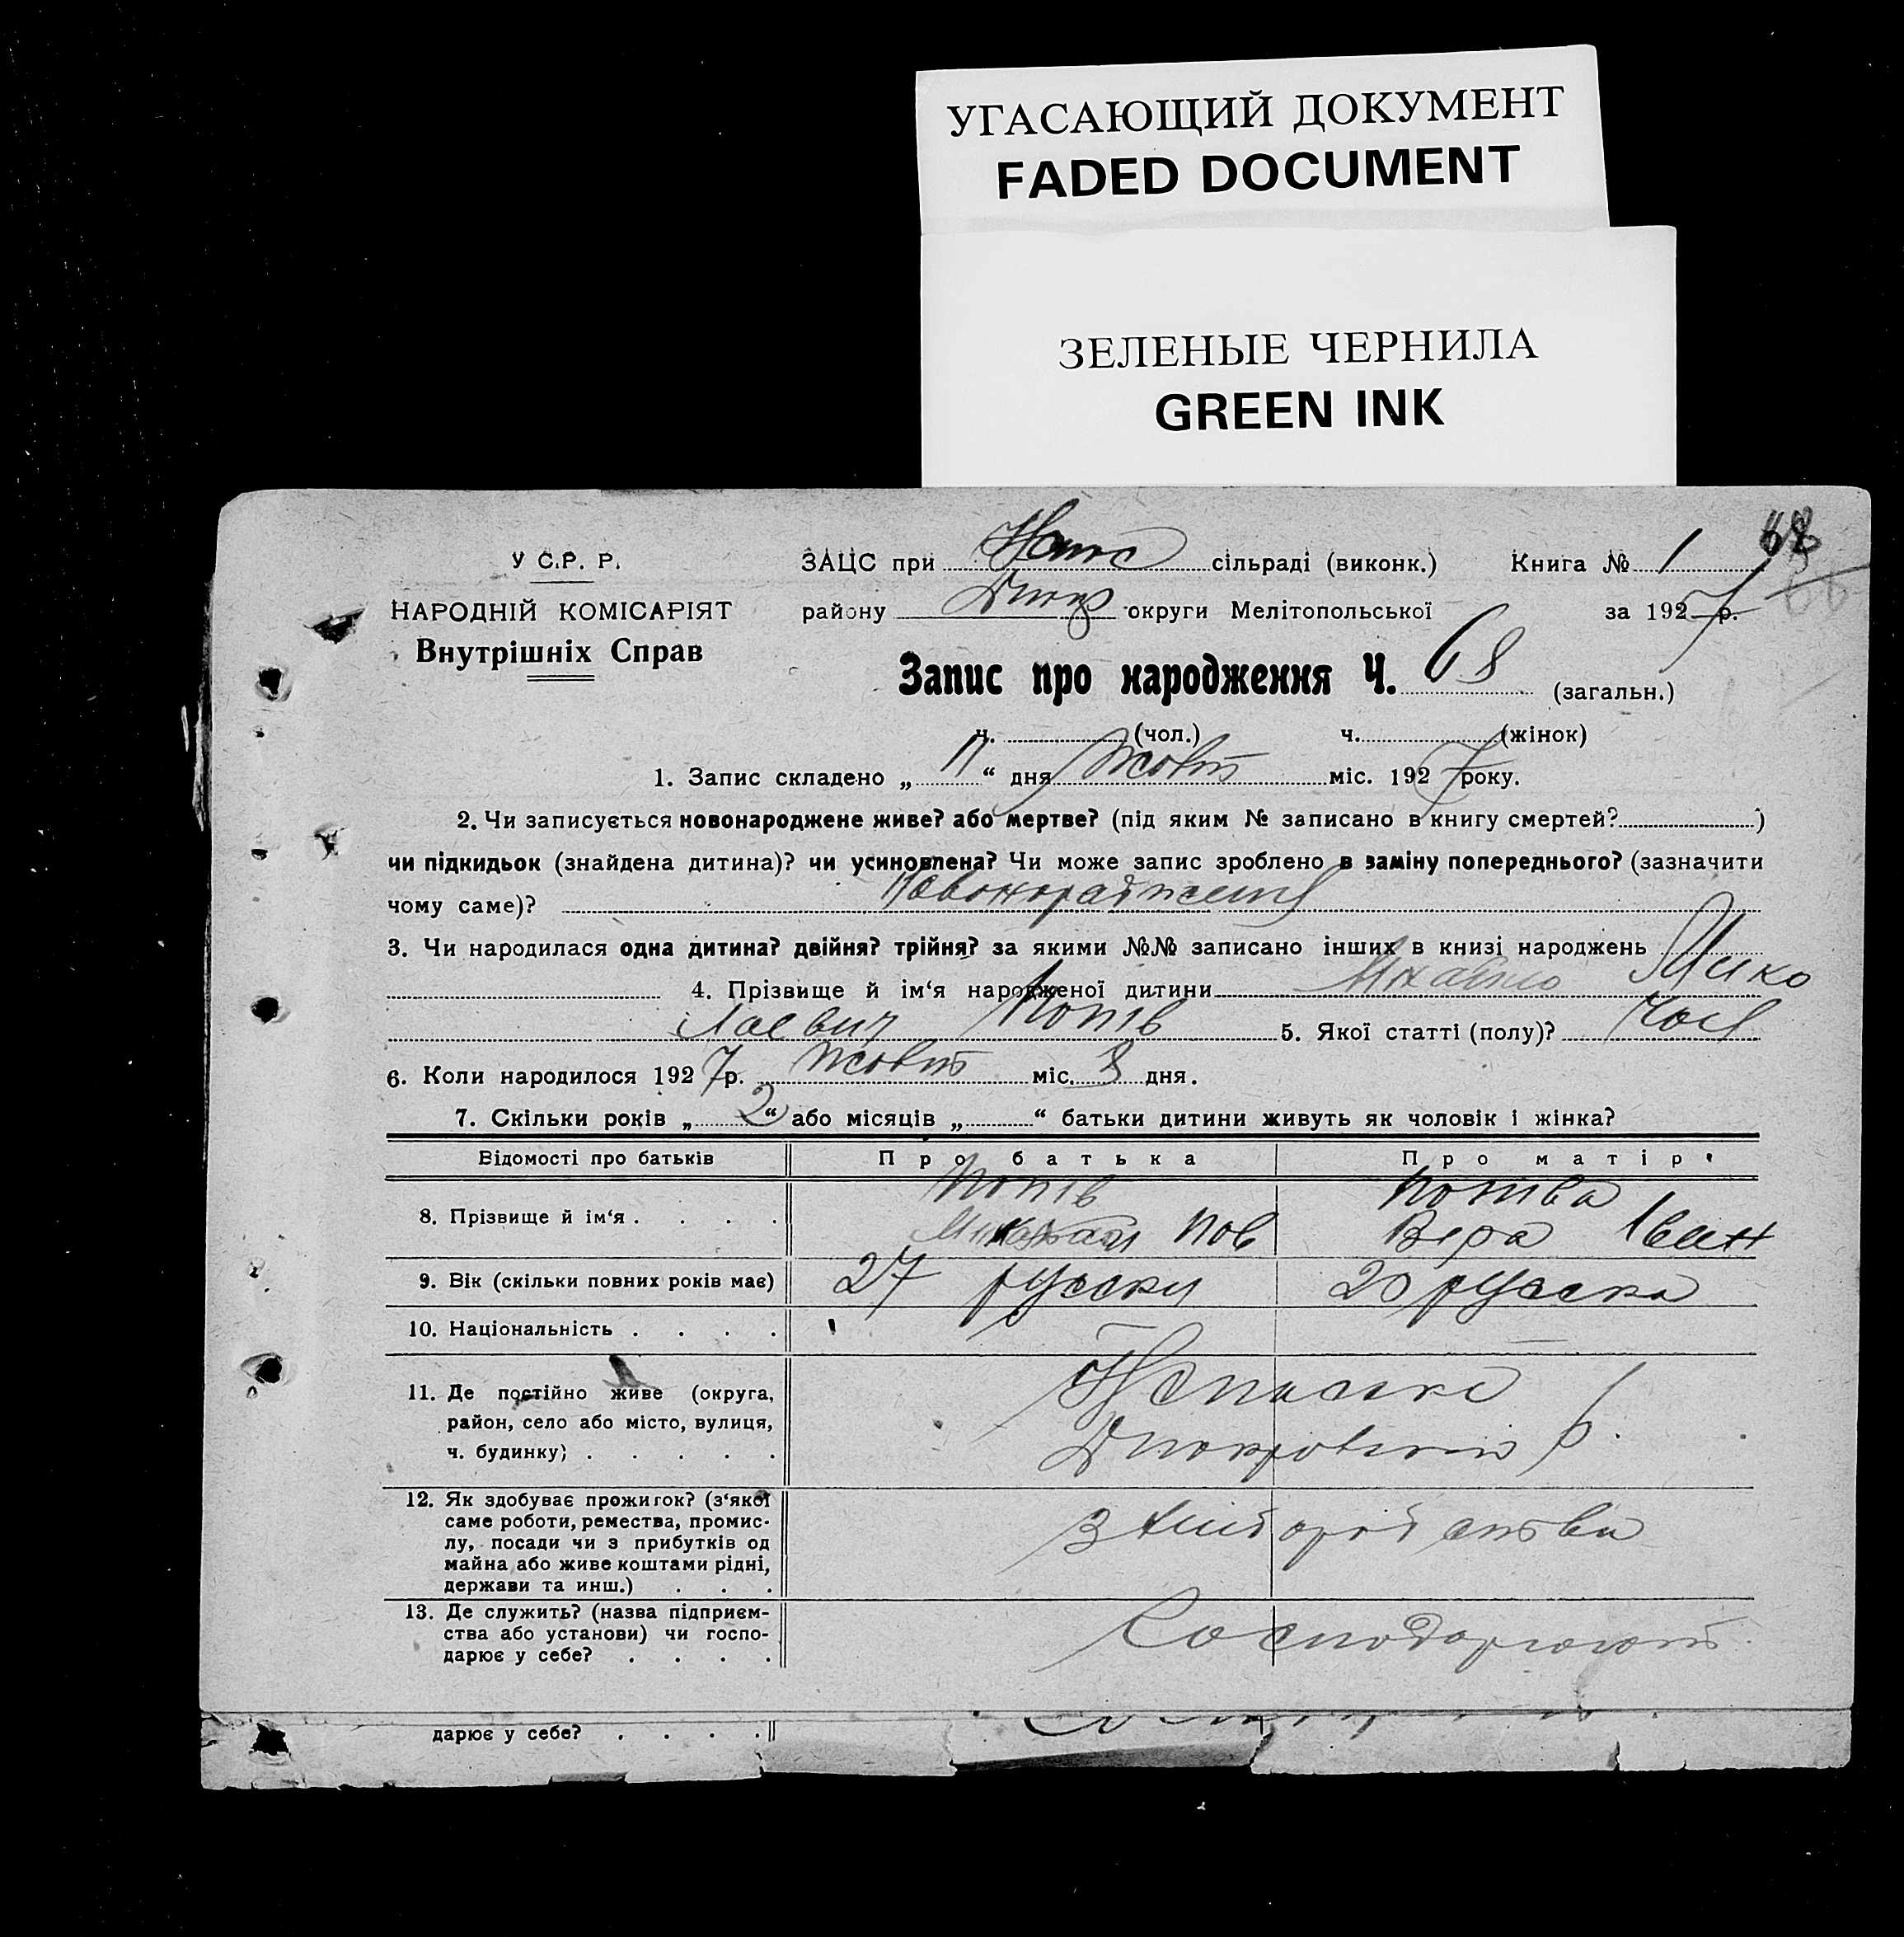 УГАСАЮЩИЙ ДОКУМЕНТ
FADED DOCUMENT
ЗЕЛЕНЫЕ ЧЕРНИЛА
GREEN INK
У С.Р. Р.
НАРОДНІЙ КОМІСАРІЯТ
Внутрішніх Справ
ЗАЦС при сільраді (виконк.) Книга № 1
району округи Мелітопольської за 1927 р.
Запис про народження Ч. 68 (загальн.)
ч. (чол.) ч. (жінок)
1. Запис складено „ 11 “ дня Жовт міс. 1927 року.
2. Чи записується новонароджене живе? або мертве? (під яким № записано в книгу смертей? )
чи підкидьок (знайдена дитина)? чи усиновлена? Чи може запис зроблено в заміну попереднього? (зазначити
чому саме)?
3. Чи народилася одна дитина? двійня? трійня? за якими №№ записано інших в книзі народжень
4. Прізвище й ім‘я народженої дитини Мико
лаевич Попів 5. Якої статті (полу)? Чол
6. Коли народилося 1927 р. Жовт міс. 8 дня.
7. Скільки років „ 2 “ або місяців „ “ батьки дитини живуть як чоловік і жінка?
Відомості про батьків Про батька Про матір
8. Прізвище й ім‘я . . . . Попів
Вера Іван
9. Вік (скільки повних років має) 27 русски 20 русска
10. Національність . . . .
11. Де постійно живе (округа,
район, село або місто, вулиця,
ч. будинку) . . . . .
12. Як здобуває прожиток? (з‘якої
саме роботи, ремества, промис-
лу, посади чи з прибутків од
майна або живе коштами рідні,
держави та инш.) . . .
13. Де служить? (назва підприєм-
ства або установи) чи госпо-
дарює у себе? . . . . Господарюють
дарює у себе? . . . .